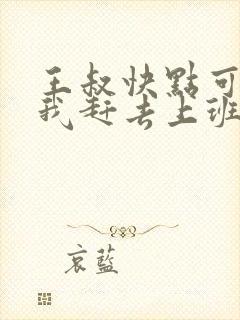 王叔快點可
我赶去上班
哀藍